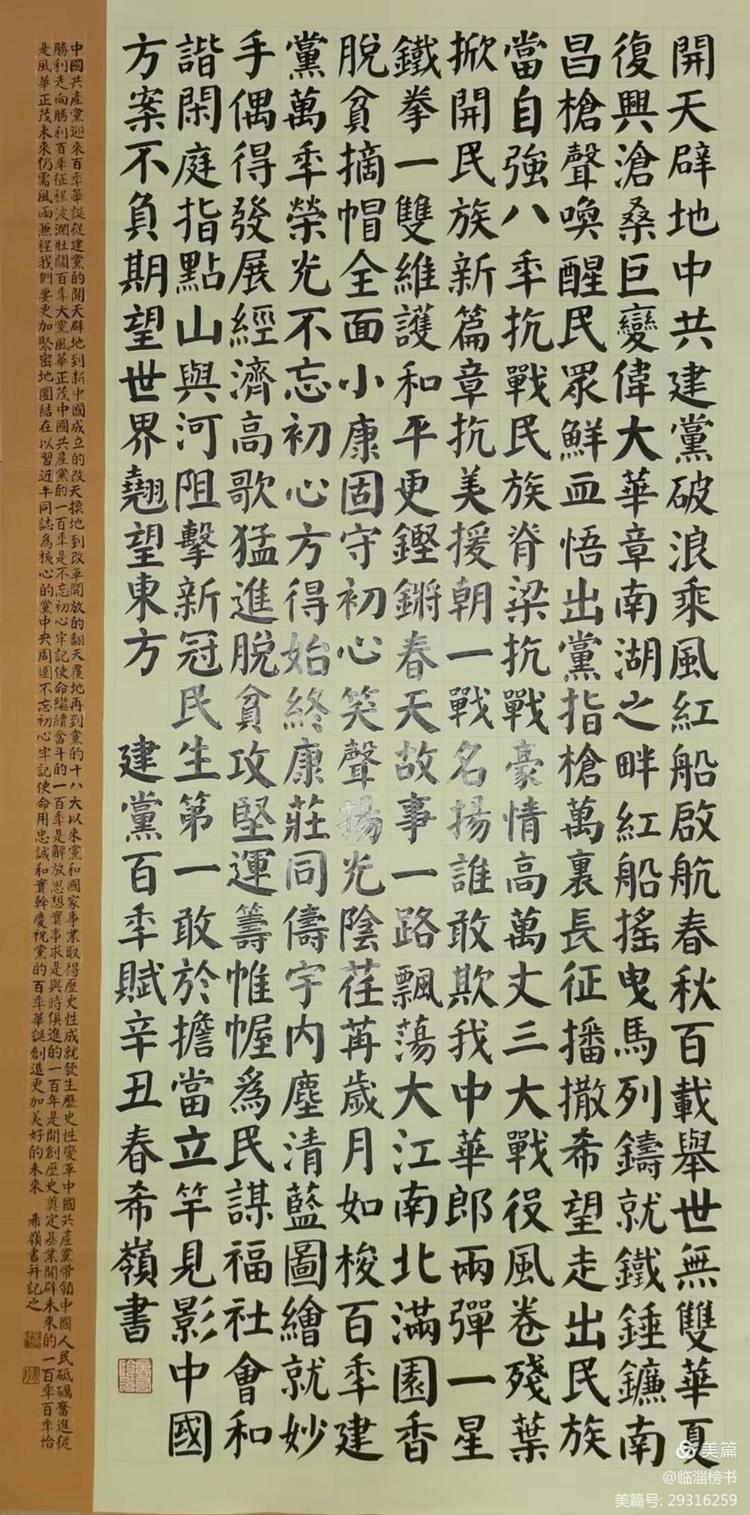 開天辟地中共建黨破浪乘風紅船啟航春秋百載舉世無雙華夏
復興滄桑巨變偉大華章南湖之畔紅船搖曳馬列鑄就鐵錘鐮南
昌槍聲喚醒民眾鮮血悟出黨指槍萬裏長征播撒希望走出民族
當自強八秊抗戰民族脊梁抗戰豪情高萬丈三大戰役風卷殘葉
掀開民族新篇章抗美援朝一戰名揚誰敢欺我中華郎兩彈一星
鐵拳一雙維護和平更鏗鏘春天故事一路飄蕩大江南北滿園香
脫貧摘帽全面小康固守初心笑聲揚光陰荏苒歲月如梭百秊建
黨萬秊榮光不忘初心方得始終康莊同儔宇内塵清藍圖繪就妙
手偶得發展經濟高歌猛進脫貧攻堅運籌帷幄爲民謀福社會和
諧閑庭指點山與河阻擊新冠民生第一敢於擔當立竿見影中國
方案不負期望世界翹望東方 建黨百秊賦辛丑春希嶺書
中國共產黨迎來百秊華誕從建黨的開天辟地到新中國成立的改天換地到改革開放的翻天覆地再到黨的十八大以來黨和國家事業取得歷史性成就發生歷史性變革中國共產黨帶領中國人民砥礪奮進從
勝利走向勝利百秊征程波瀾壯闊百秊大黨風華正茂中國共產黨的一百秊是不忘初心牢記使命繼續奮斗的一百秊是解放思想實事求是與時俱進的一百年是開創歷史奠定基業開辟未來的一百秊百秊恰
是風華正茂未來仍需風雨兼程我們要更加緊密地團結在以習近平同誌為核心的黨中央周圍不忘初心牢記使命用忠誠和實幹慶祝黨的百秊華誕創造更加美好的未來 希嶺書并記之
美篇
@临淄榜书
美篇号: 29316259